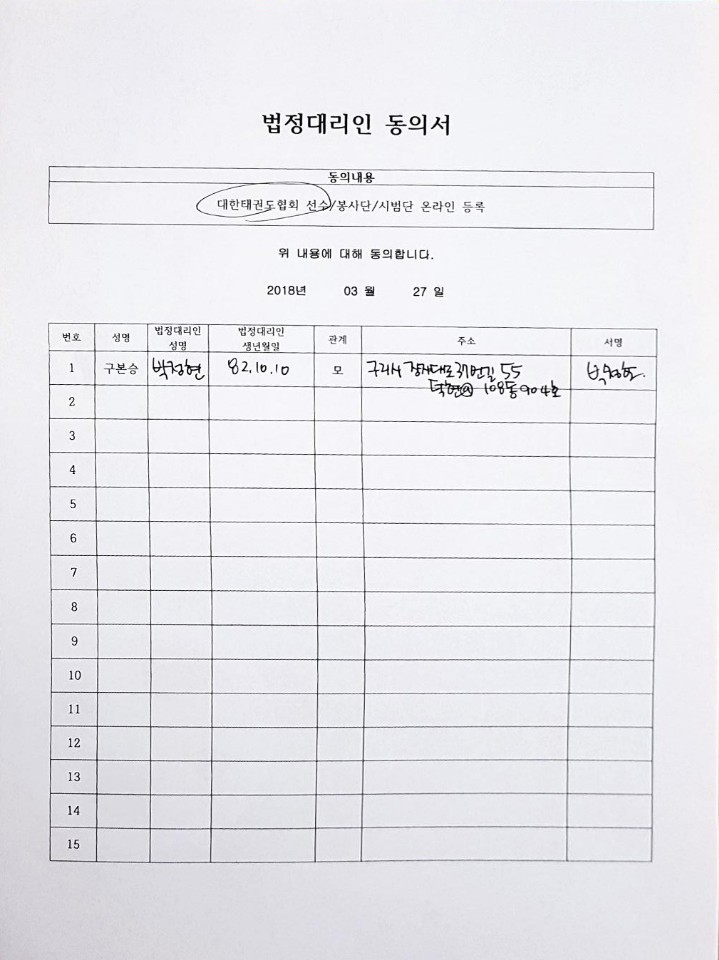 법정대리인 동의서
동의내용
대한태권도협회 선수/봉사단/시범단 온라인 등록
위 내용에 대해 동의합니다.
2018년 03 월 27 일
번호 성명 법정대리인 성명 법정대리인 생년월일 관계 주소 서명
1 구본승 박정현 82.10.10 모 구리시 55 박정현
덕현 108동 904호
2
3
4
5
6
7
8
9
10
11
12
13
14
15